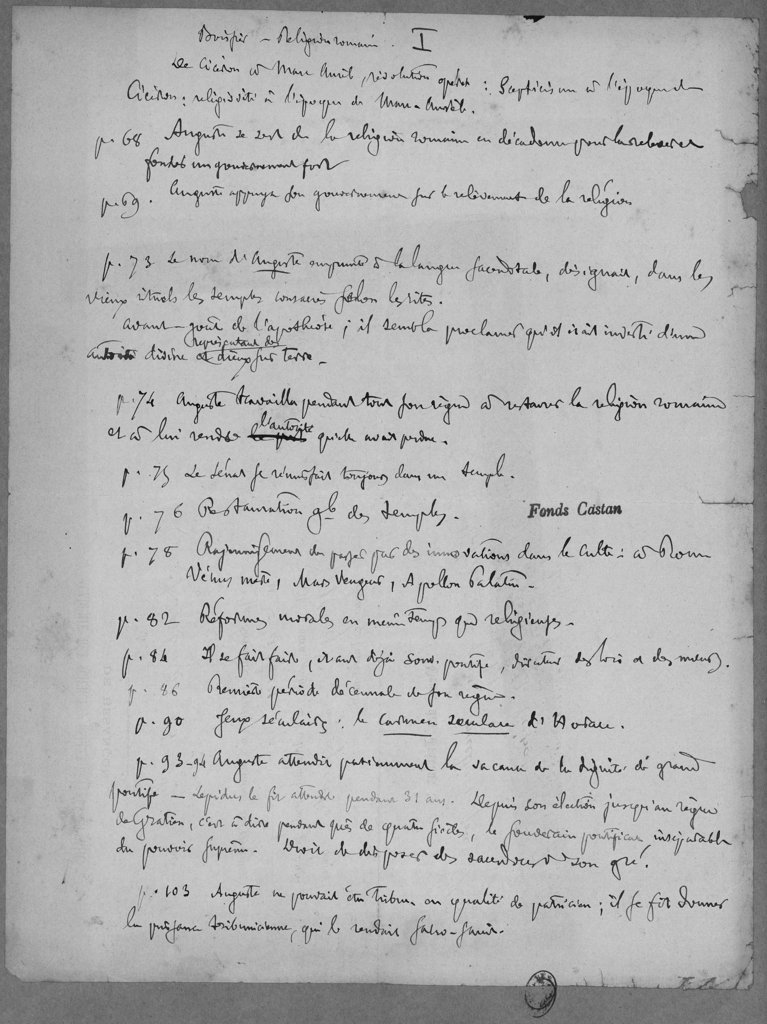 Boissier — Religion romaine. I
De Cicéron à Marc Aurèle, révolution opérée : Scepticisme à l'époque de
Cicéron ; religiosité à l'époque de Marc-Aurèle.
p. 68 Auguste se sert de la religion romaine en décadence pour la relever et
fonder un gouvernement fort
p. 69. Auguste appuya son gouvernement sur le relèvement de la religion
p. 73 Le nom d'Auguste emprunté à la langue sacerdotale, désignait, dans les
vieux rituels les temples consacrés selon les rites.
avant-goût de l'apothéose ; il sembla proclamer qu'il était investi d'une
autorité divine et représentant des dieux sur terre —
p. 74 Auguste travailla pendant tout son règne à restaurer la religion romaine
et à lui rendre l'autorité qu'elle avait perdue.
p. 75 Le Sénat se réunissait toujours dans un temple.
p. 76 Restauration gle des temples.
Fonds Castan
p. 78 Rajeunissement du passé par des innovations dans le culte : à Rome
Vénus mère, Mars Vengeur, Apollon Palatin —
p. 82 Réformes morales en même temps que religieuses —
p. 84 Il se fait faire, étant déjà souv. pontife, directeur des lois et des mœurs.
p. 86 Première période décennale de son règne.
p. 90 Jeux séculaires : le carmen seculare d'Horace.
p. 93-94 Auguste attendit patiemment la vacance de la dignité de grand
pontife — Lepidus le fit attendre pendant 31 ans. Depuis son élection jusqu'au règne
de Gratien, c'est à dire pendant près de quatre siècles, le souverain pontificat inséparable
du pouvoir suprême. Droit de disposer des sacerdoces à son gré.
p. 103 Auguste ne pouvait être tribun en qualité de patricien ; il se fit donner
la puissance tribunicienne, qui le rendait sacro-saint.